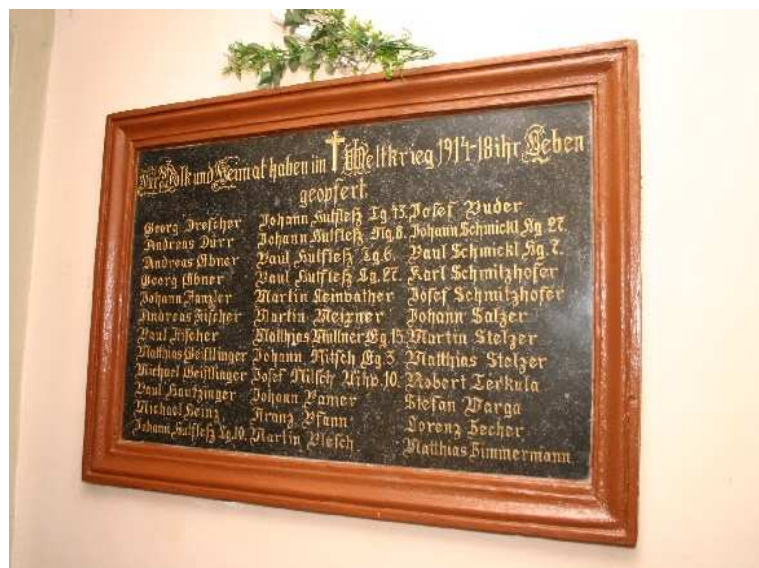 Für Volk und Heimat haben im Weltkrieg 1914-18 ihr Leben
geopfert.
Georg Drescher
Andreas Dürr
Andreas Ebner
Georg Ebner
Johann Fanzler
Andreas Fischer
Paul Fischer
Matthias Geistlinger
Michael Geistlinger
Paul Hautzinger
Michael Heinz
Johann Hutfleß Lg. 10.
Johann Hutfleß Lg. 43.
Johann Hutfleß 8.
Paul Hutfleß Lg. 6.
Paul Hutfleß Lg. 27.
Martin
Martin Meixner
Matthias Müllner Eg. 15.
Johann Nitsch Eg. 3.
Josef Nitsch 10.
Johann Pamer
Franz Pfann
Martin Plesch
Josef Puder
Johann Schmickl Hg. 27.
Paul Schmickl Hg. 7.
Karl Schmitzhofer
Josef Schmitzhofer
Johann Salzer
Martin Stelzer
Matthias Stelzer
Robert Terkula
Stefan Varga
Lorenz Zecher
Matthias Zimmermann